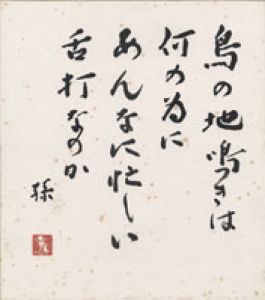 鳥の地鳴きは
何の為に
あんなに忙しい
舌打なのか
孫